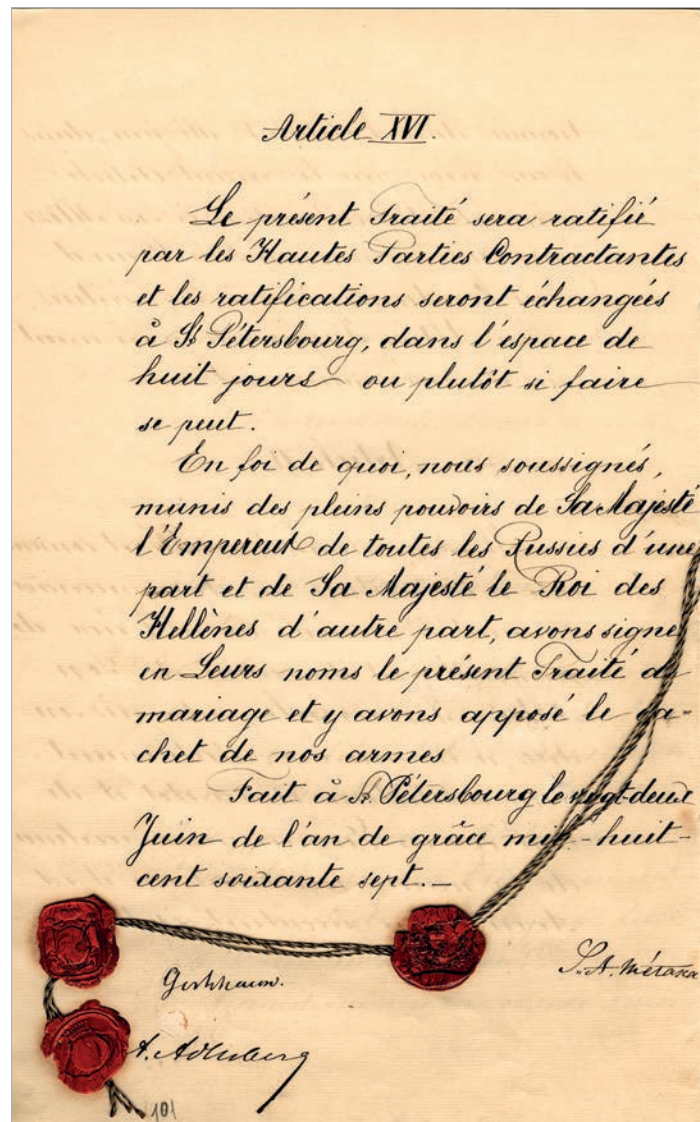 Article XVI.
Le présent Traité sera ratifié
par les Hautes Parties Contractantes
et les ratifications seront échangées
à St Pétersbourg, dans l'espace de
huit jours ou plutôt si faire
se peut.
En foi de quoi, nous soussignés,
munis des pleins pouvoirs de Sa Majesté
l'Empereur de toutes les Russies d'une
part et de Sa Majesté le Roi des
Hellènes d'autre part, avons signé
en Leurs noms le présent Traité de
mariage et y avons apposé le ca-
chet de nos armes
Fait à St. Pétersbourg le vingt-deux
Juin de l'an de grâce mil-huit-
cent soixante sept.—
S. A. Métaxa
A. Adlerberg
101